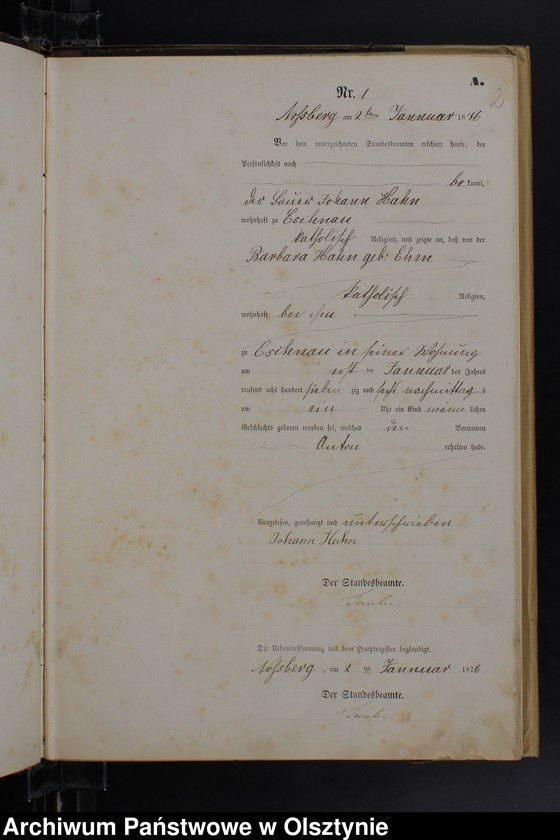 A.
2
Nr. 1
Nossberg am 2ten Januar 1876
Vor dem unterzeichneten Standesbeamten erschien heute, der
Persönlichkeit nach
bekannt,
der Bauer Johann Hahn
wohnhaft zu Eschnau
katholisch Religion, und zeigte an, daß von der
Barbara Hahn geb: Ehm
katholisch Religion,
wohnhaft bei ihm
zu Eschnau in seiner Wohnung
am ten Januar des Jahres
tausend acht hundert sieben zig und sechs nachmittag s
um ein Uhr ein Kind männ lichen
Geschlechts geboren worden sei, welches den Vornamen
Anton erhalten habe.
Vorgelesen, genehmigt und unterschrieben
Johann Hahn
Der Standesbeamte.
Die Uebereinstimmung mit dem Hauptregister beglaubigt.
Nossberg, am 2 ten Januar 1876
Der Standesbeamte.
Archiwum Państwowe w Olsztynie